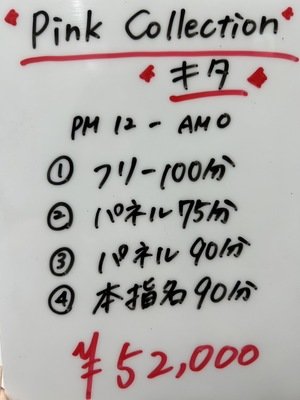 Pink Collection
キタ
PM 12 - AM 0
① フリー100分
② パネル 75分
③ パネル 90分
④ 本指名 90分
¥52,000